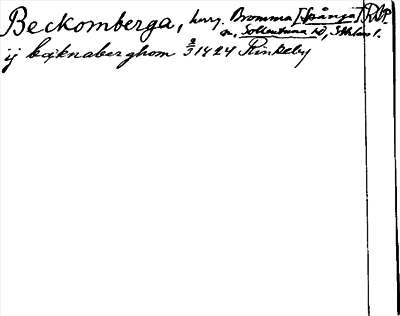 Beckomberga, herrg. Bromma [Spånga] RDP.
sn, Sollentuna hd, Sthlms l.
ij bęknaberghom 2/3 1424 Rinkeby